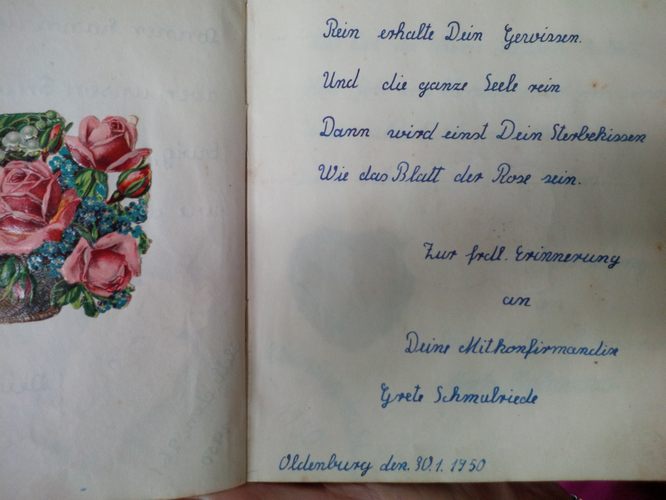 Rein erhalte Dein Gewissen.
Und die ganze Seele rein
Dann wird einst Dein Sterbekissen
Wie das Blatt der Rose sein.
Zur frdl. Erinnerung
an
Deine Mitkonfirmandin
Grete Schmulriede
Oldenburg den. 30.1.1950